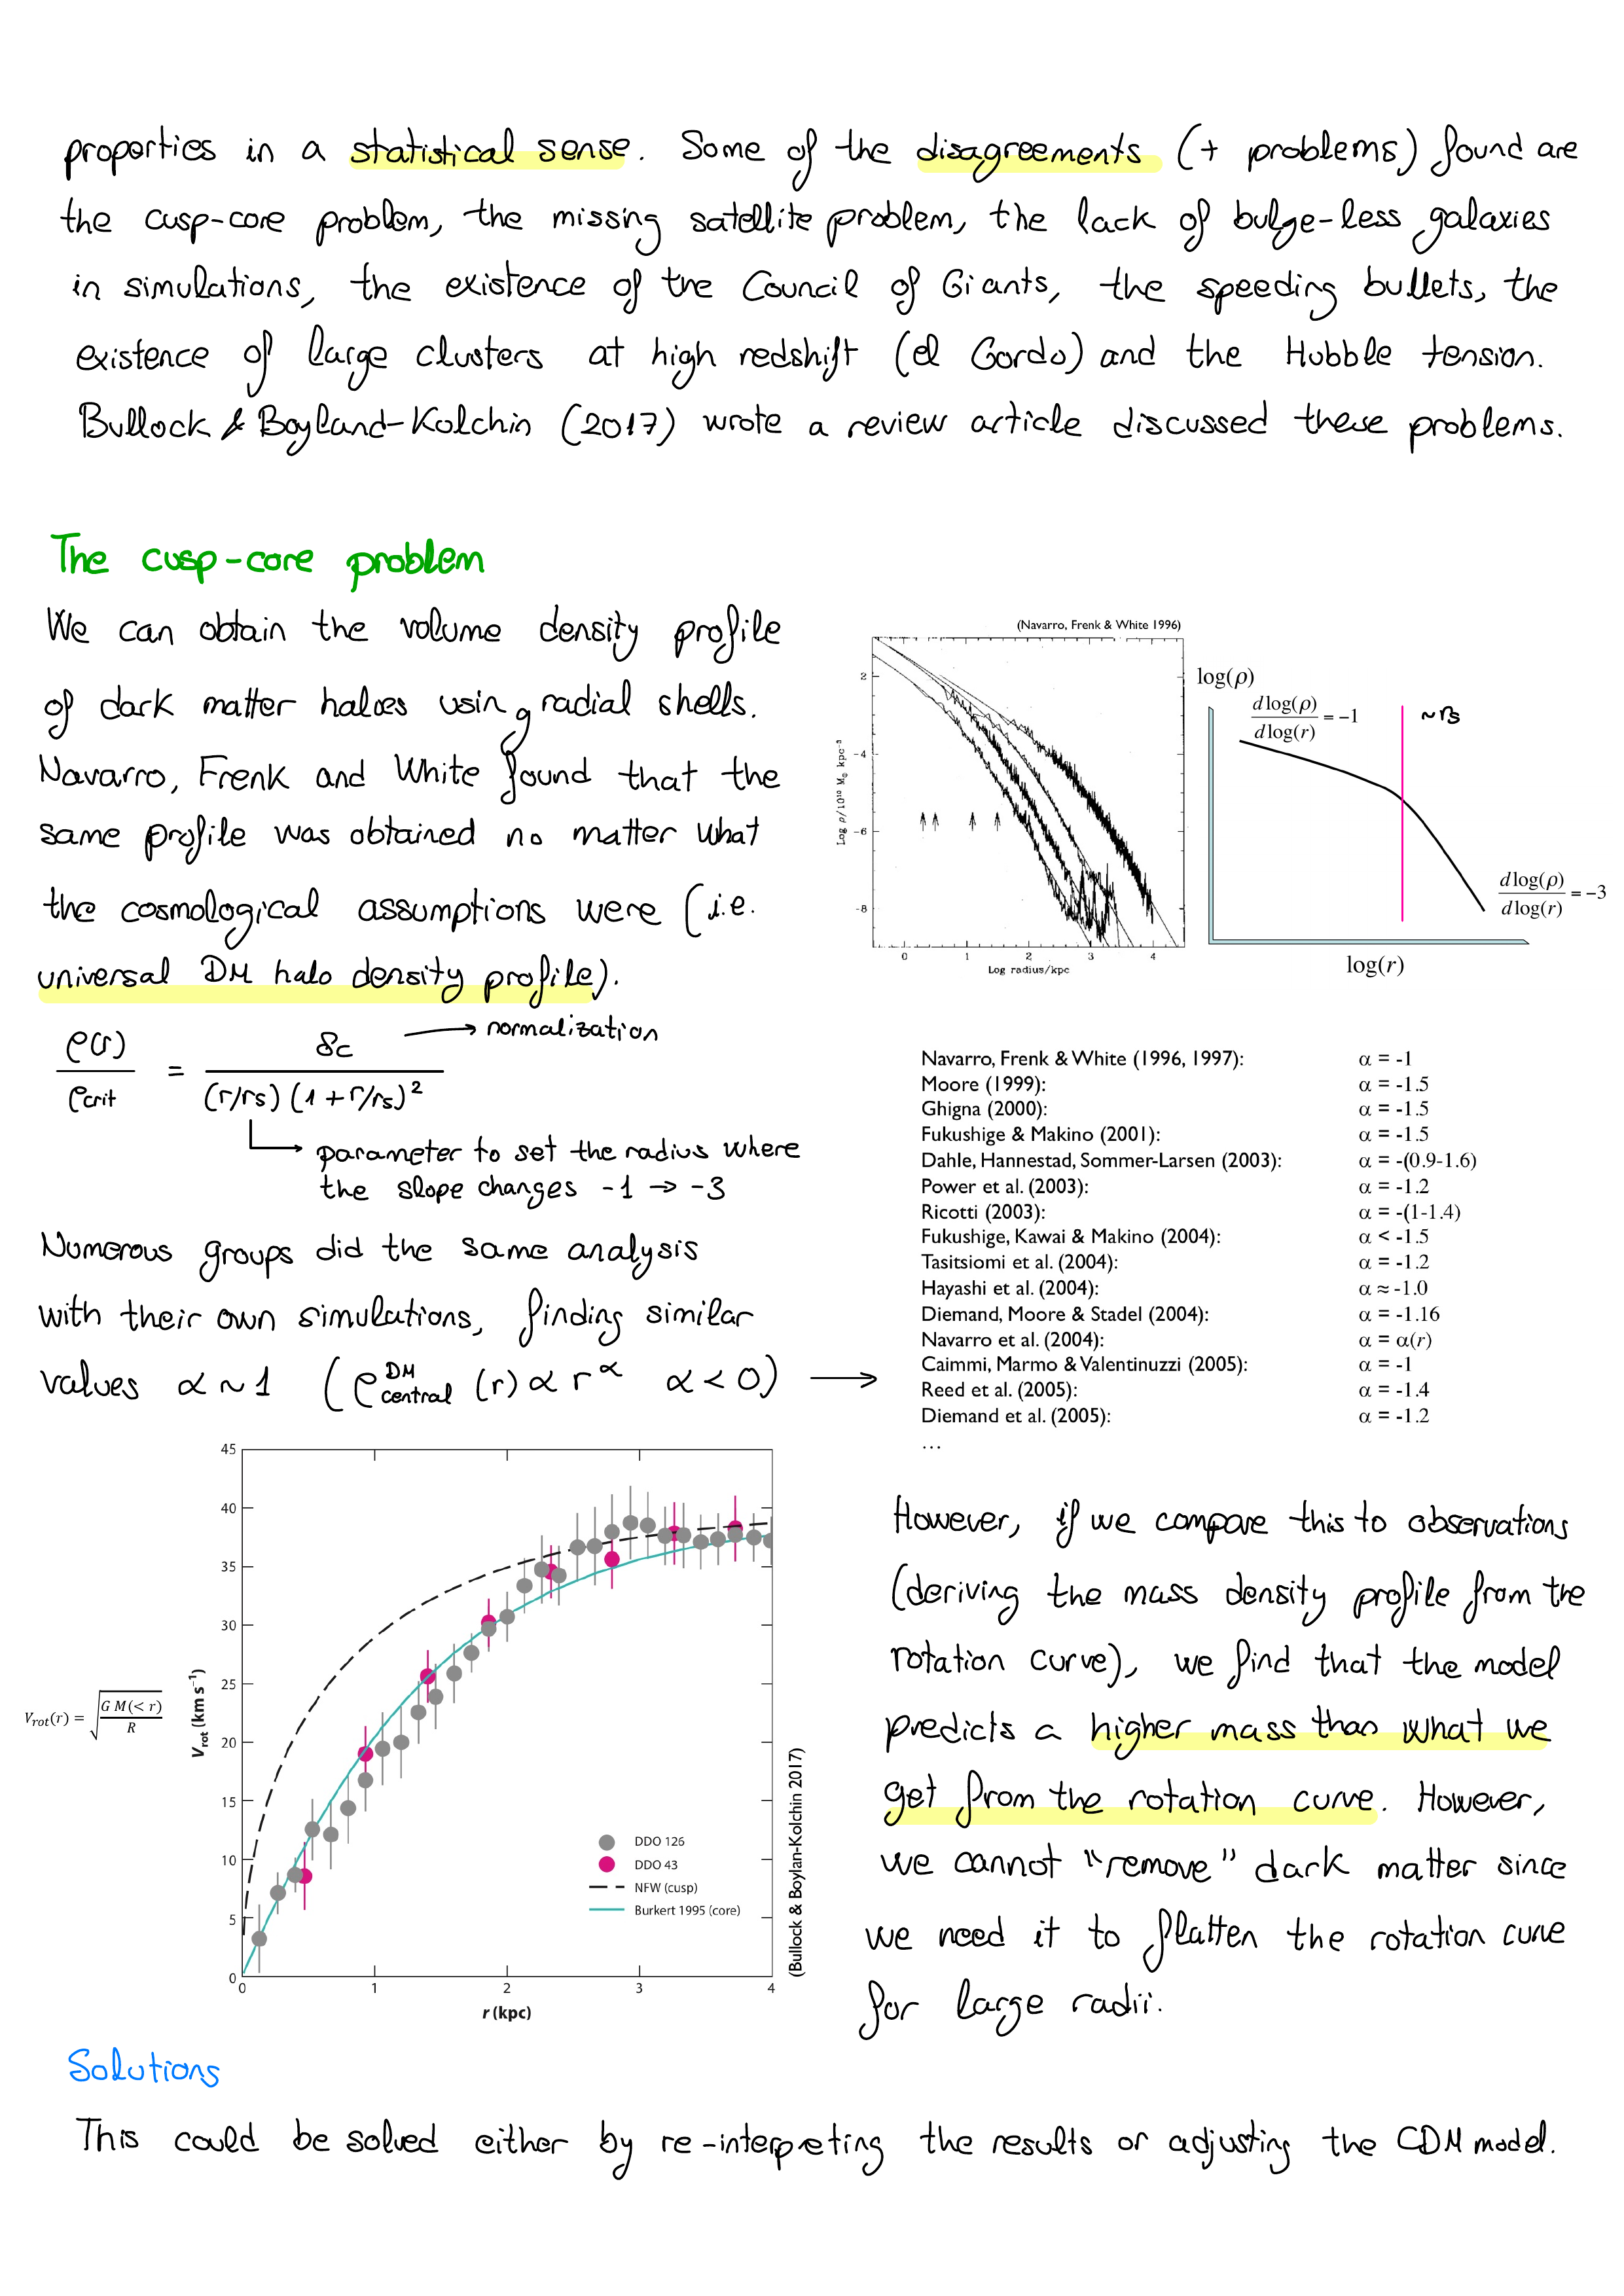 properties in a statistical sense. Some of the disagreements (+ problems) found are
the cusp-core problem, the missing satellite problem, the lack of bulge-less galaxies
in simulations, the existence of the Council of Giants, the speeding bullets, the
existence of large clusters at high redshift (el Gordo) and the Hubble tension.
Bullock & Boyland-Kolchin (2017) wrote a review article discussed these problems.
The cusp-core problem
We can obtain the volume density profile
of dark matter haloes using radial shells.
Navarro, Frenk and White found that the
same profile was obtained no matter what
the cosmological assumptions were (i.e.
universal DM halo density profile).
ρ(r)/ρcrit = δc / (r/rs)(1+r/rs)²
→ normalization
→ parameter to set the radius where
the slope changes -1 → -3
(Navarro, Frenk & White 1996)
2
-4
-6
-8
Log ρ/10¹⁰ M⊙ kpc⁻³
0 1 2 3 4
Log radius/kpc
log(ρ)
dlog(ρ)/dlog(r) = −1
~rs
dlog(ρ)/dlog(r) = −3
log(r)
Numerous groups did the same analysis
with their own simulations, finding similar
values α ~ 1 (ρ^DM_central (r) ∝ r^α α < 0) →
Navarro, Frenk & White (1996, 1997): α = -1
Moore (1999): α = -1.5
Ghigna (2000): α = -1.5
Fukushige & Makino (2001): α = -1.5
Dahle, Hannestad, Sommer-Larsen (2003): α = -(0.9-1.6)
Power et al. (2003): α = -1.2
Ricotti (2003): α = -(1-1.4)
Fukushige, Kawai & Makino (2004): α < -1.5
Tasitsiomi et al. (2004): α = -1.2
Hayashi et al. (2004): α ≈ -1.0
Diemand, Moore & Stadel (2004): α = -1.16
Navarro et al. (2004): α = α(r)
Caimmi, Marmo & Valentinuzzi (2005): α = -1
Reed et al. (2005): α = -1.4
Diemand et al. (2005): α = -1.2
…
Vrot(r) = √(G M(< r)/R)
Vrot (km s⁻¹)
45
40
35
30
25
20
15
10
5
0
0 1 2 3 4
r (kpc)
DDO 126
DDO 43
NFW (cusp)
Burkert 1995 (core)
(Bullock & Boylan-Kolchin 2017)
However, if we compare this to observations
(deriving the mass density profile from the
rotation curve), we find that the model
predicts a higher mass than what we
get from the rotation curve. However,
we cannot "remove" dark matter since
we need it to flatten the rotation curve
for large radii.
Solutions
This could be solved either by re-interpreting the results or adjusting the CDM model.